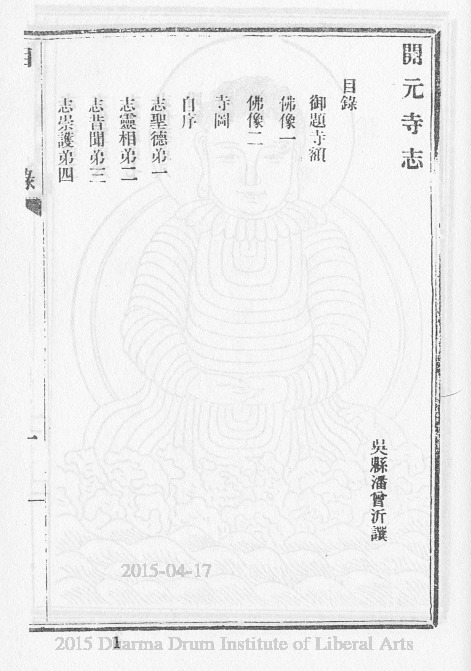 開元寺志
吳縣潘曾沂譔
目錄
御題寺額
佛像一
佛像二
寺圖
自序
志聖德弟一
志靈相弟二
志昔聞弟三
志崇護弟四
目 錄
一
1
2015-04-17
2015 Dharma Drum Institute of Liberal Arts